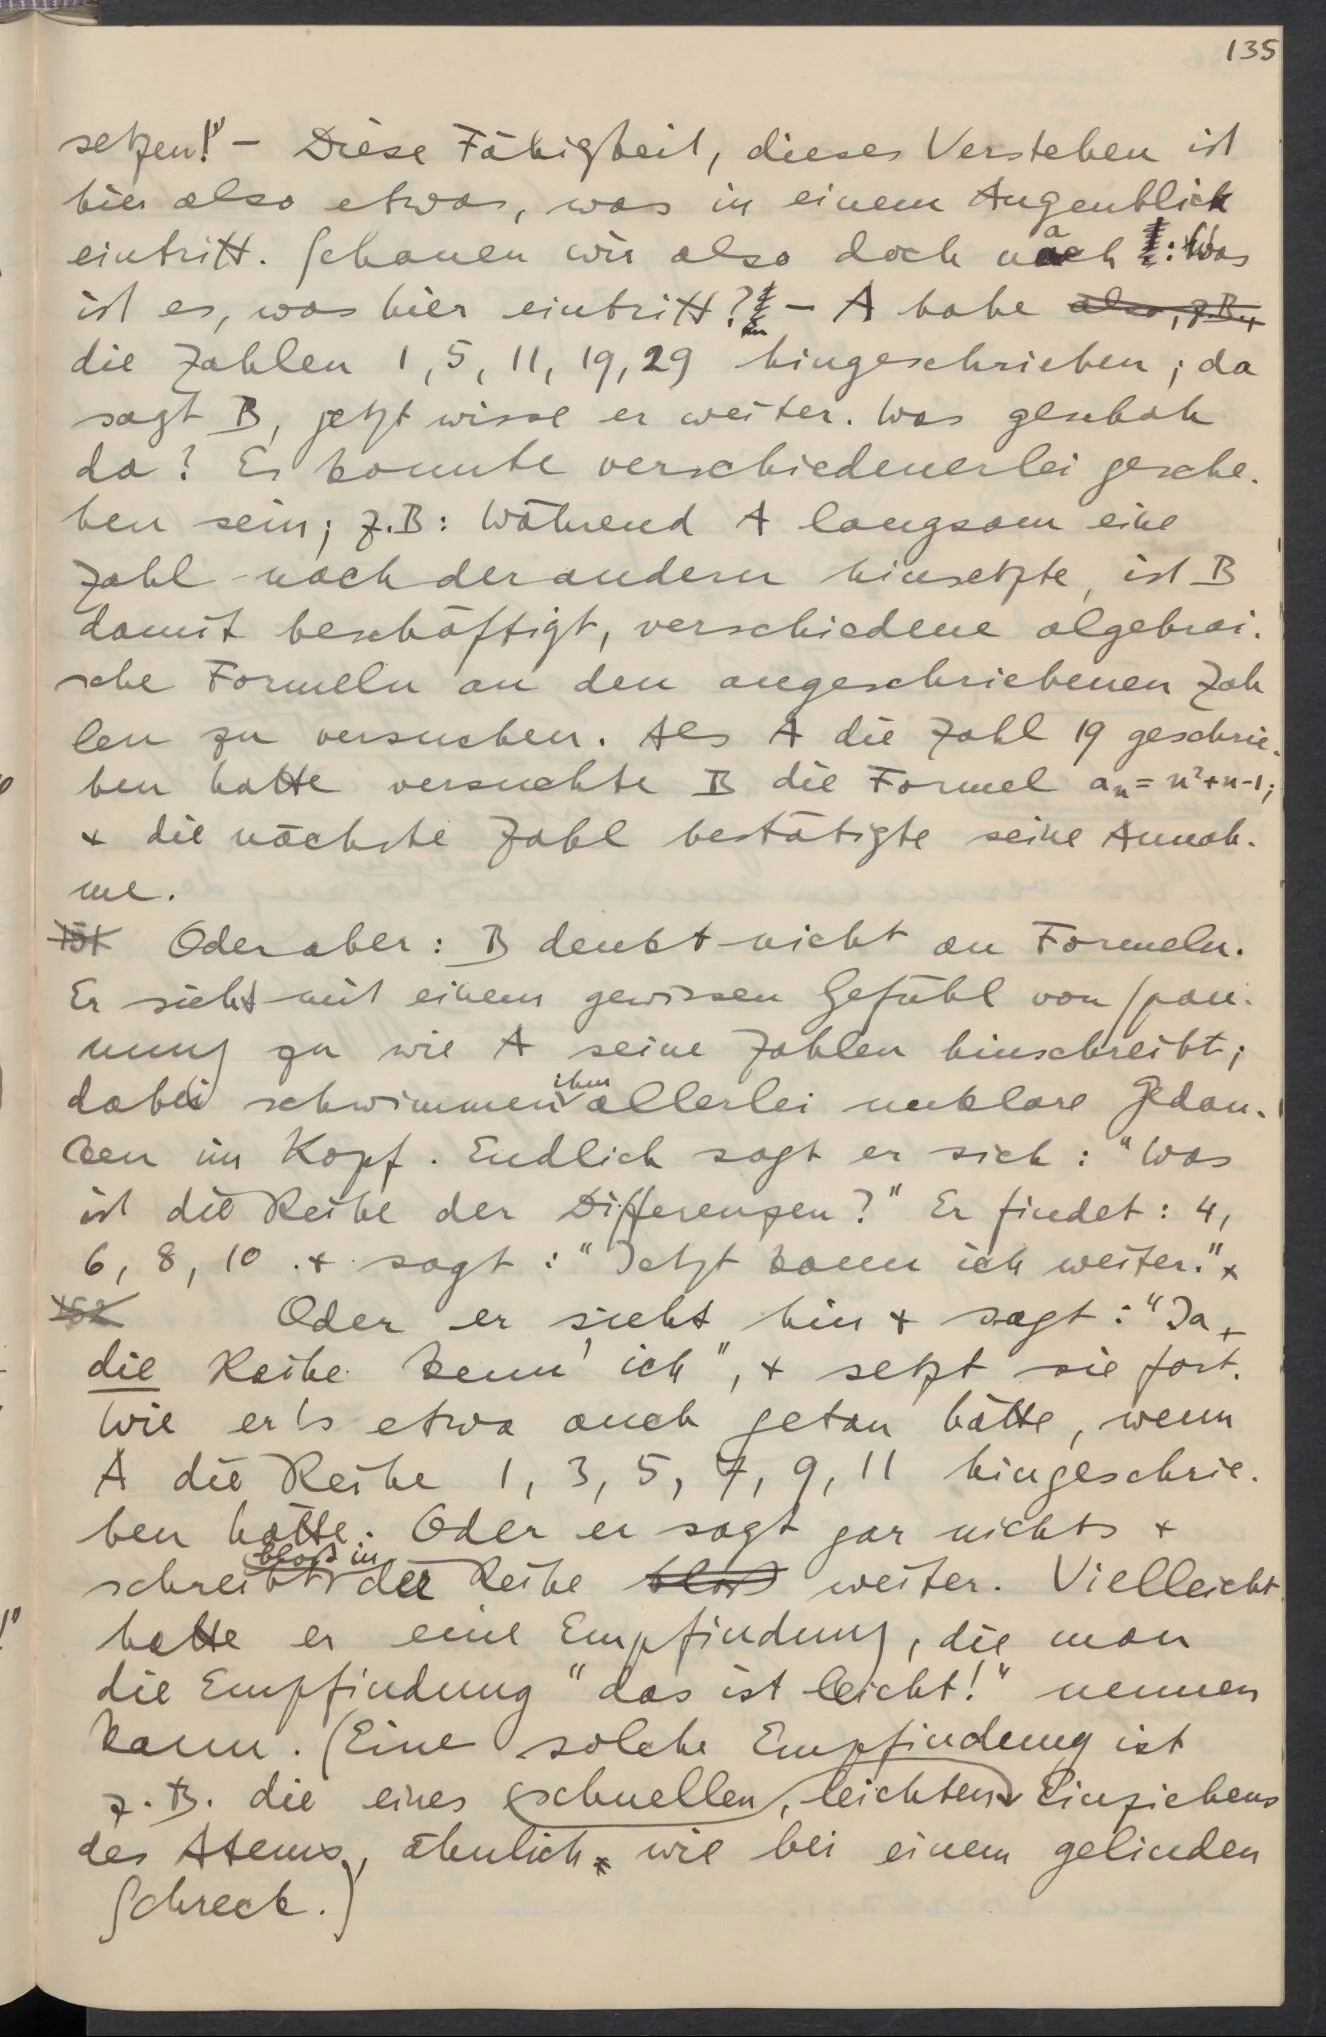 135
setzen!” – Diese Fähigkeit, dieses Verstehen ist
hier also etwas, was in einem Augenblick
eintritt. Schauen wir also doch nach: Was
ist es, was hier eintritt? – A habe also, z.B.,
die Zahlen 1, 5, 11, 19, 29 hingeschrieben; da
sagt B, jetzt wisse er weiter. Was geschah
da? Es konnte verschiedenerlei gesche-
hen sein; z.B: Während A langsam eine
Zahl nach der andern hinsetzte, ist B
damit beschäftigt, verschiedene algebrai-
sche Formeln an den angeschriebenen Zah
len zu versuchen. Als A die Zahl 19 geschrie-
ben hatte versuchte B die Formel aₙ = n²+n-1;
+ die nächste Zahl bestätigte seine Annah-
me.
151 Oder aber: B denkt nicht an Formeln.
Er sieht mit einem gewissen Gefühl von Span-
nung zu wie A seine Zahlen hinschreibt;
dabei schwimmen ihm allerlei unklare Gedan-
ken im Kopf. Endlich sagt er sich: “Was
ist die Reihe der Differenzen?” Er findet: 4,
6, 8, 10 + sagt: “Jetzt kann ich weiter.” +
152 Oder er sieht hin + sagt: “Ja,
die Reihe kenn' ich”, + setzt sie fort.
Wie er's etwa auch getan hätte, wenn
A die Reihe 1, 3, 5, 7, 9, 11 hingeschrie-
ben hätte. Oder er sagt gar nichts +
schreibt bloß in der Reihe bloß weiter. Vielleicht
hatte er eine Empfindung, die man
die Empfindung “das ist leicht!” nennen
kann. (Eine solche Empfindung ist
z.B. die eines schnellen, leichten Einziehens
des Atems, ähnlich wie bei einem gelinden
Schreck.)